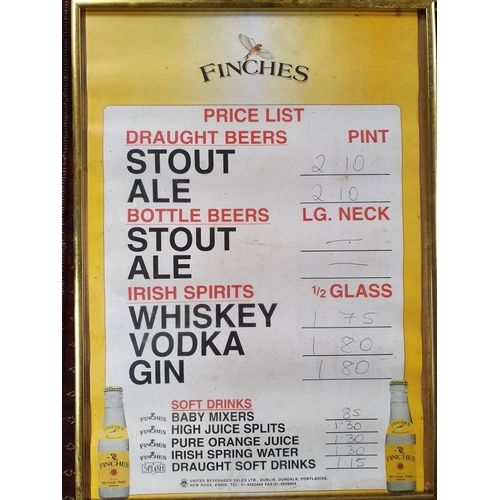 FINCHES
PRICE LIST
DRAUGHT BEERS PINT
STOUT 2.10
ALE 2.10
BOTTLE BEERS LG. NECK
STOUT —
ALE —
IRISH SPIRITS 1/2 GLASS
WHISKEY 1.75
VODKA 1.80
GIN 1.80
SOFT DRINKS
FINCHES BABY MIXERS 85
FINCHES HIGH JUICE SPLITS 1.30
FINCHES PURE ORANGE JUICE 1.30
FINCHES IRISH SPRING WATER 1.30
SPLASH DRAUGHT SOFT DRINKS 1.15
FINCHES
FINCHES
UNITED BEVERAGES SALES LTD., DUBLIN, DUNDALK, PORTLAOISE,
NEW ROSS, ENNIS.